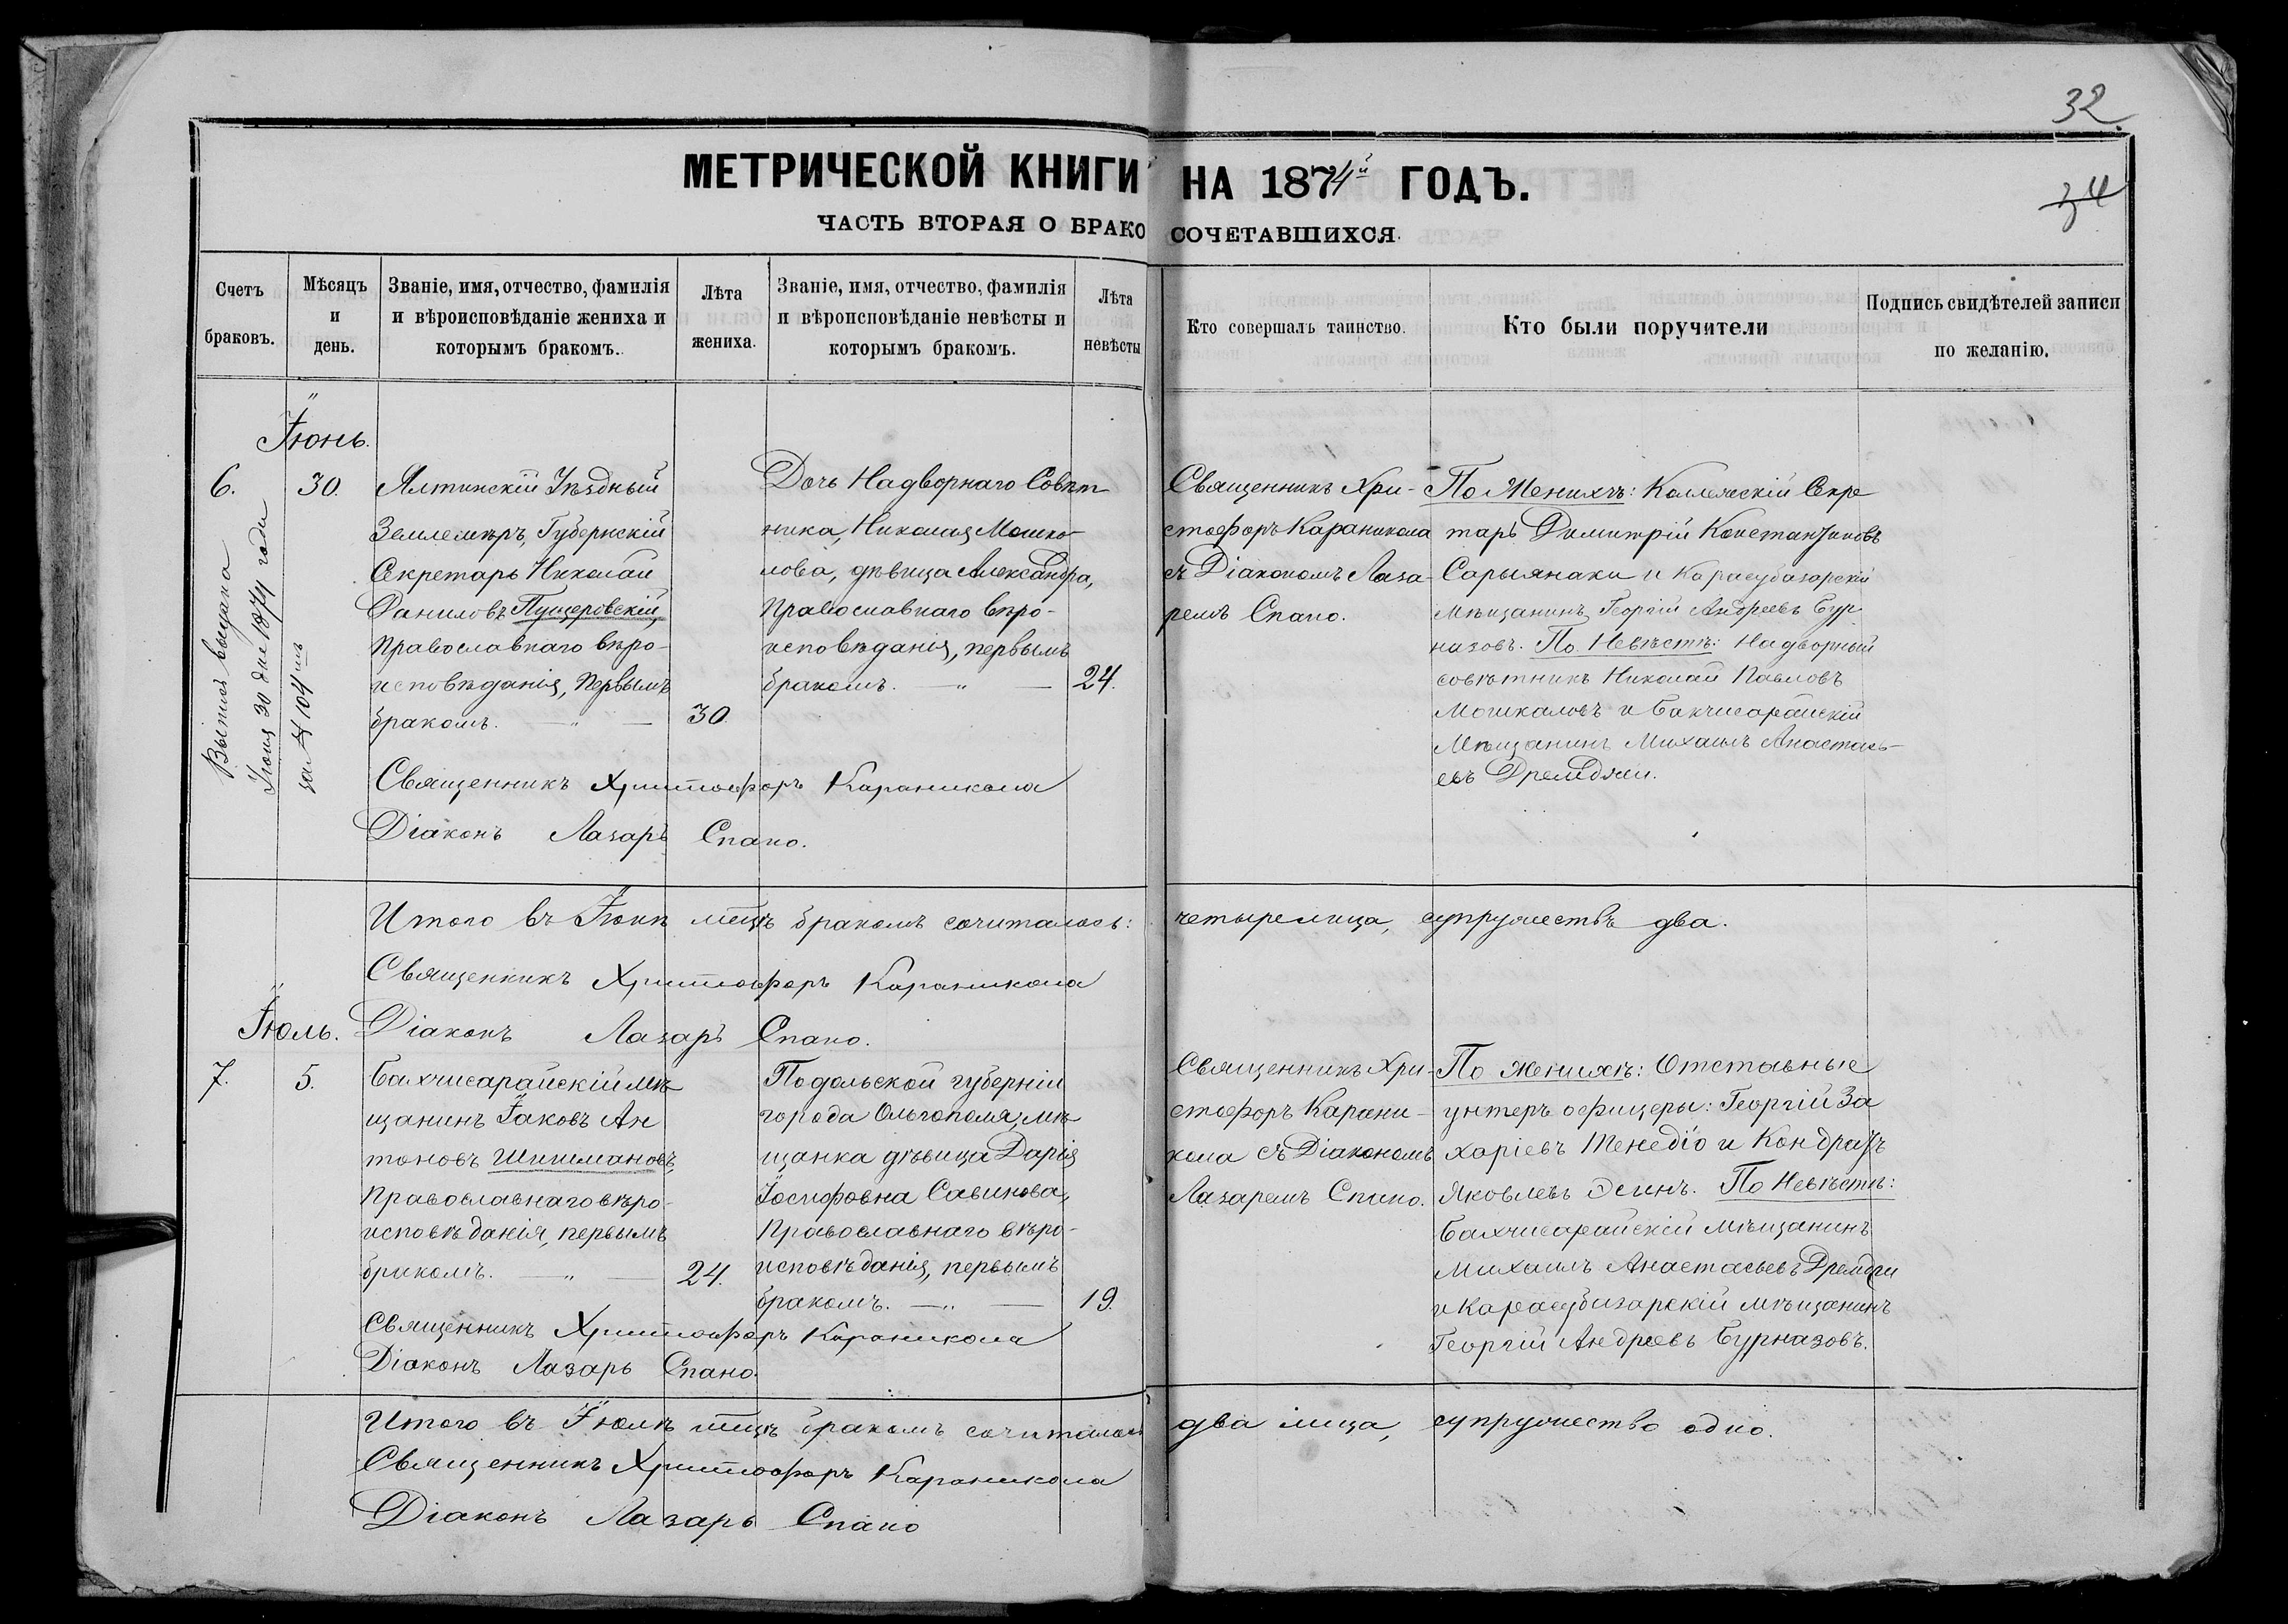 32.
34
МЕТРИЧЕСКОЙ КНИГИ НА 1874й ГОДЪ.
ЧАСТЬ ВТОРАЯ О БРАКОСОЧЕТАВШИХСЯ.
Счетъ
браковъ.
Мѣсяцъ
и
день.
Званіе, имя, отчество, фамилія
и вѣроисповѣданіе жениха и
которымъ бракомъ.
Лѣта
жениха.
Званіе, имя, отчество, фамилія
и вѣроисповѣданіе невѣсты и
которымъ бракомъ.
Лѣта
невѣсты
Кто совершалъ таинство.
Кто были поручители
Подпись свидѣтелей записи
по желанію.
Іюнь.
6.
30.
Выпись выдана
Іюня 30 дня 1874 года
за № 104мъ
Ялтинскій Уѣздный
Землемѣръ, Губернскій
Секретарь Николай
Даниловъ Пущеровскій,
Православнаго вѣро-
исповѣданія, первымъ
бракомъ. — „ —
30.
Дочь Надворнаго Совѣт
ника, Николая Мошка-
лова, дѣвица Александра,
Православнаго вѣро-
исповѣданія, первымъ
бракомъ. — „ —
24.
Священникъ Хри-
стофоръ Караникола
съ Діакономъ Лаза-
ремъ Спано.
По Женихѣ: Коллежскій Секре
тарь Димитрій Константиновъ
Сарыянаки и Карасубазарскій
Мѣщанинъ Георгій Андреевъ Бур-
назовъ. По Невѣстѣ: Надворный
совѣтникъ Николай Павловъ
Мошкаловъ и Бахчисарайскій
Мѣщанинъ Михаилъ Анастась-
евъ Дремджи.
Священникъ Христофоръ Караникола
Діаконъ Лазарь Спано.
Итого въ Іюнѣ мцѣ бракомъ сочиталось: четыре лица, супружествъ два.
Священникъ Христофоръ Караникола
Діаконъ Лазарь Спано.
Іюль.
7.
5.
Бахчисарайскій мѣ
щанинъ Іаковъ Ан
тоновъ Шишмановъ
Православнаго вѣро-
исповѣданія, первымъ
бракомъ. — „ —
24.
Подольской губерніи
города Ольгополя, мѣ
щанка дѣвица Дарія
Іосифовна Савинова,
Православнаго вѣро-
исповѣданія, первымъ
бракомъ. — „ —
19.
Священникъ Хри-
стофоръ Карани-
кола съ Діакономъ
Лазаремъ Спано.
По женихѣ: Отставные
унтеръ офицеры: Георгій За
харіевъ Тенедіо и Кондратъ
Яковлевъ Эсинъ. По Невѣстѣ:
Бахчисарайскій мѣщанинъ
Михаилъ Анастасьевъ Дремджи
и Карасубазарскій мѣщанинъ
Георгій Андреевъ Бурназовъ.
Священникъ Христофоръ Караникола
Діаконъ Лазарь Спано.
Итого въ Іюлѣ мцѣ бракомъ сочиталось два лица, супружество одно.
Священникъ Христофоръ Караникола
Діаконъ Лазарь Спано